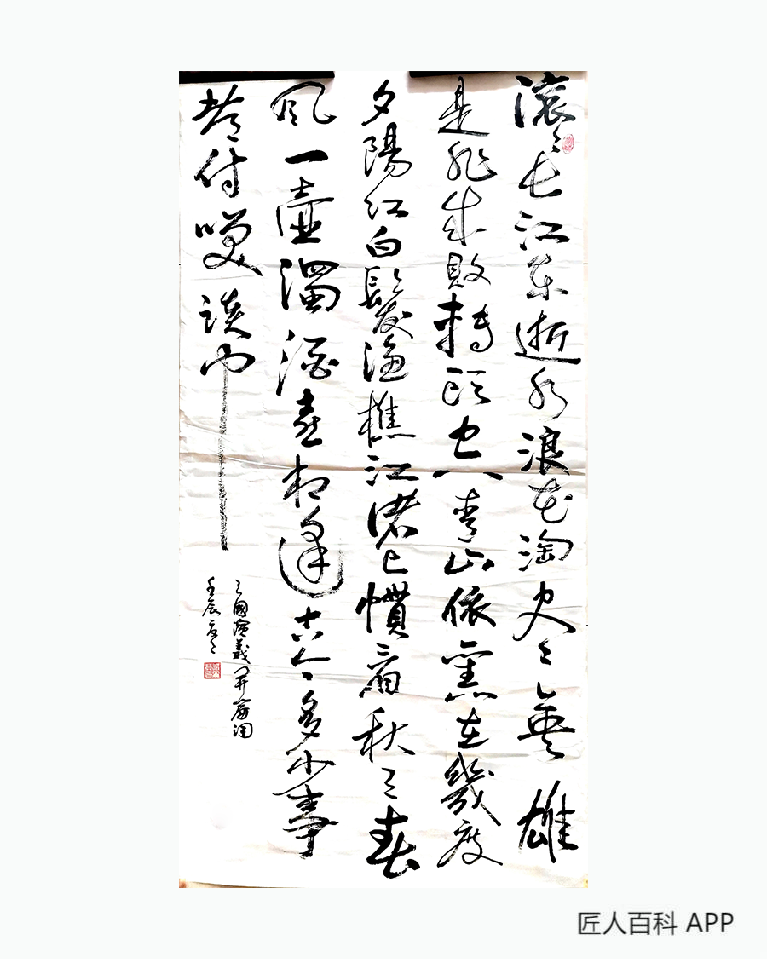 滚滚长江东逝水浪花淘尽英雄
是非成敗轉頭空青山依舊在幾度
夕陽红白髮漁樵江渚上慣看秋月春
风一壺濁酒喜相逢古今多少事
都付笑談中
三國演義開篇词
壬辰
匠人百科 APP